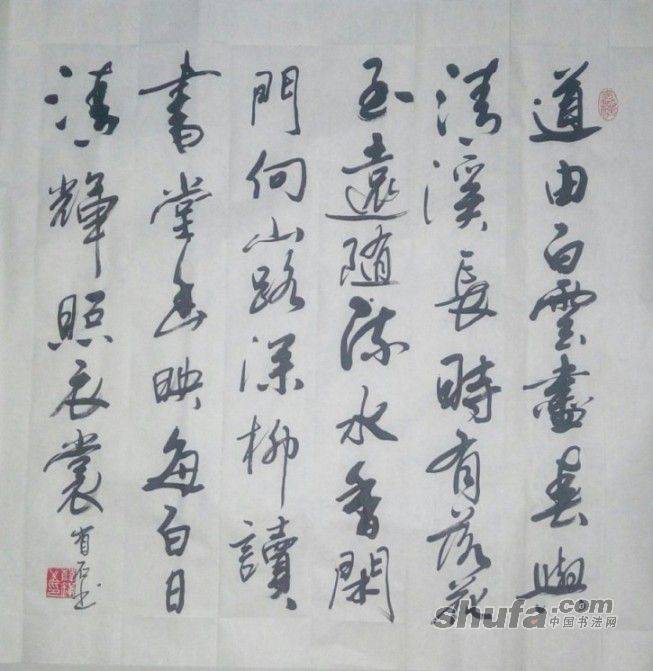 道由白雲盡春與
清溪長時有落花
至遠隨流水香閑
門向山路深柳讀
書堂幽映每白日
清輝照衣裳
石书
shufa.com
中国书法网